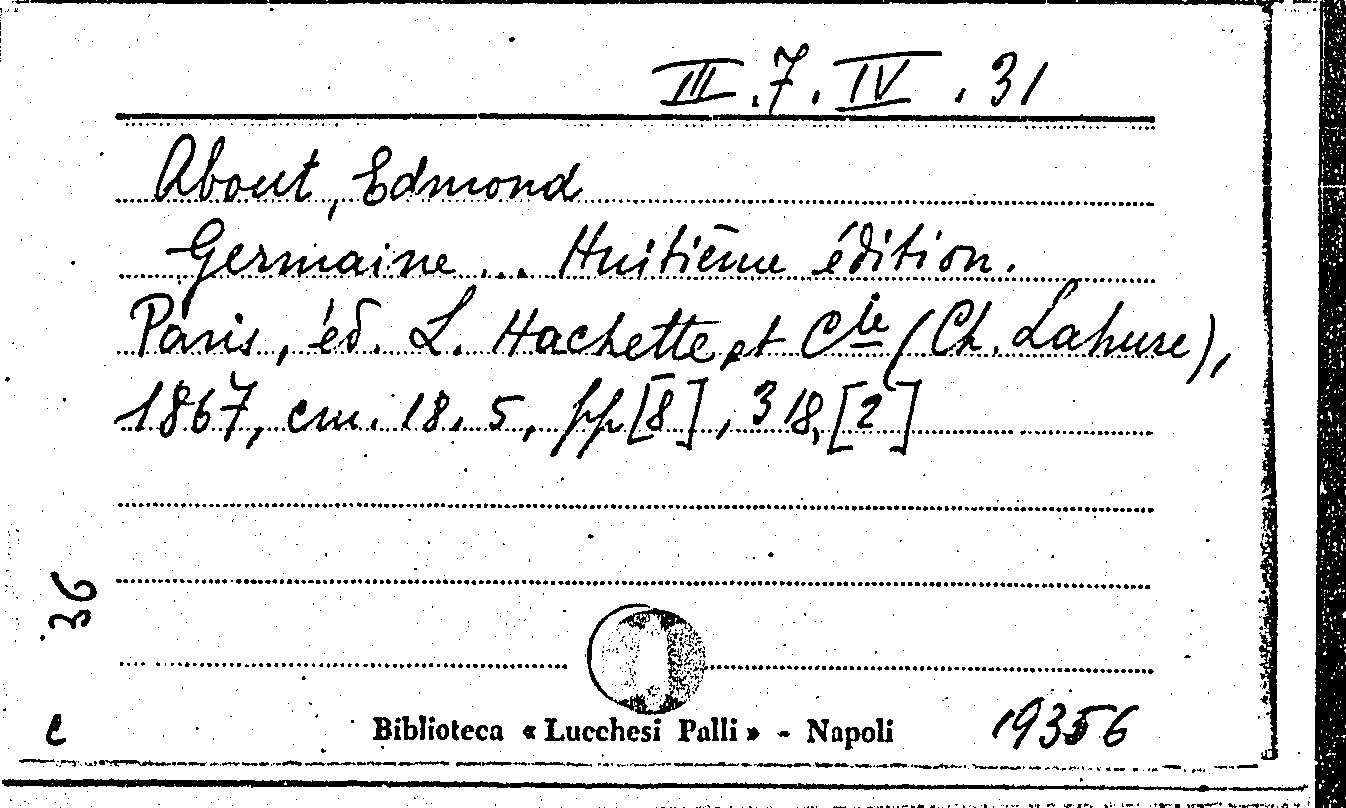 III.7.IV.31
About, Edmond
Germaine ... Huitième édition.
Paris, éd. L. Hachette et Cie (Ch. Lahure),
1867, cm. 18.5, pp [8], 318, [2]
36
c
Biblioteca « Lucchesi Palli » - Napoli
19356